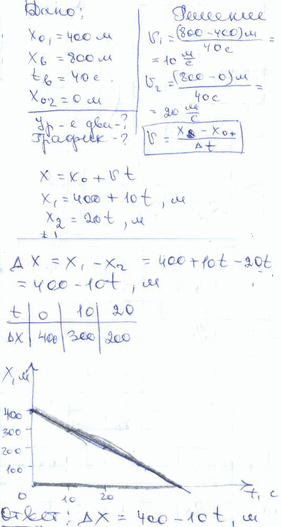 Дано:
x₀₁ = 400 м
xв = 800 м
tв = 40 с.
x₀₂ = 0 м
Ур-е дви-?
График-?
Решение
v₁ = (800-400)м / 40с =
= 10 м/с
v₂ = (800-0)м / 40с =
= 20 м/с
v = xв - x₀₁ / Δt
x = x₀ + vt
x₁ = 400 + 10t, м
x₂ = 20t, м
Δx = x₁ - x₂ = 400 + 10t - 20t
= 400 - 10t, м
t | 0 | 10 | 20
Δx | 400 | 300 | 200
x, м
400
300
200
100
0 10 20 t, с
Ответ: Δx = 400 - 10t, м